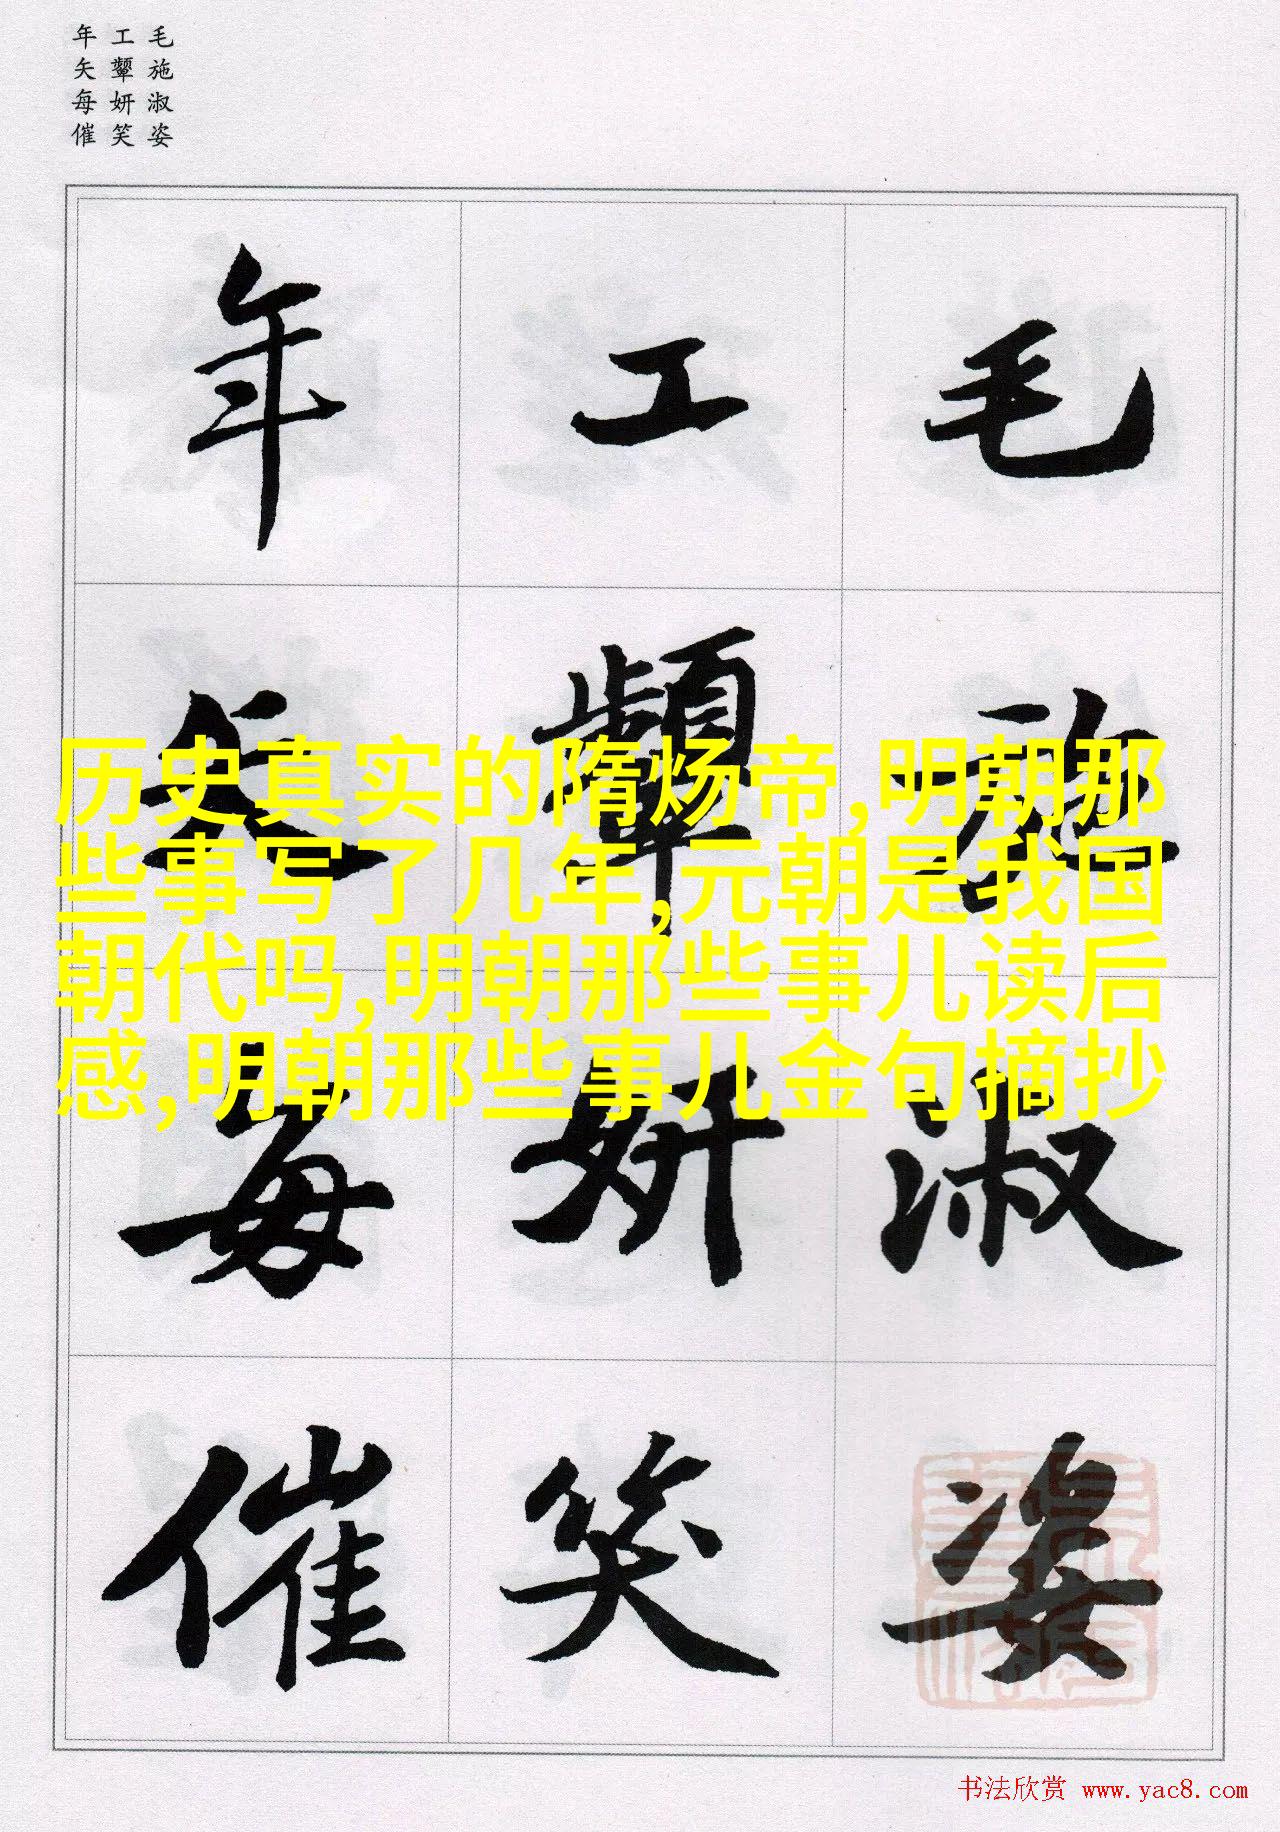 毛施淑姿
工颦妍笑
年矢每催
毛施淑姿
工颦妍笑
年矢每催
历史真实的隋炀帝,明朝那
些事写了几年,元朝是我国
朝代吗,明朝那些事儿读后
感,明朝那些事儿金句摘抄
书法欣赏 www.yac8.com